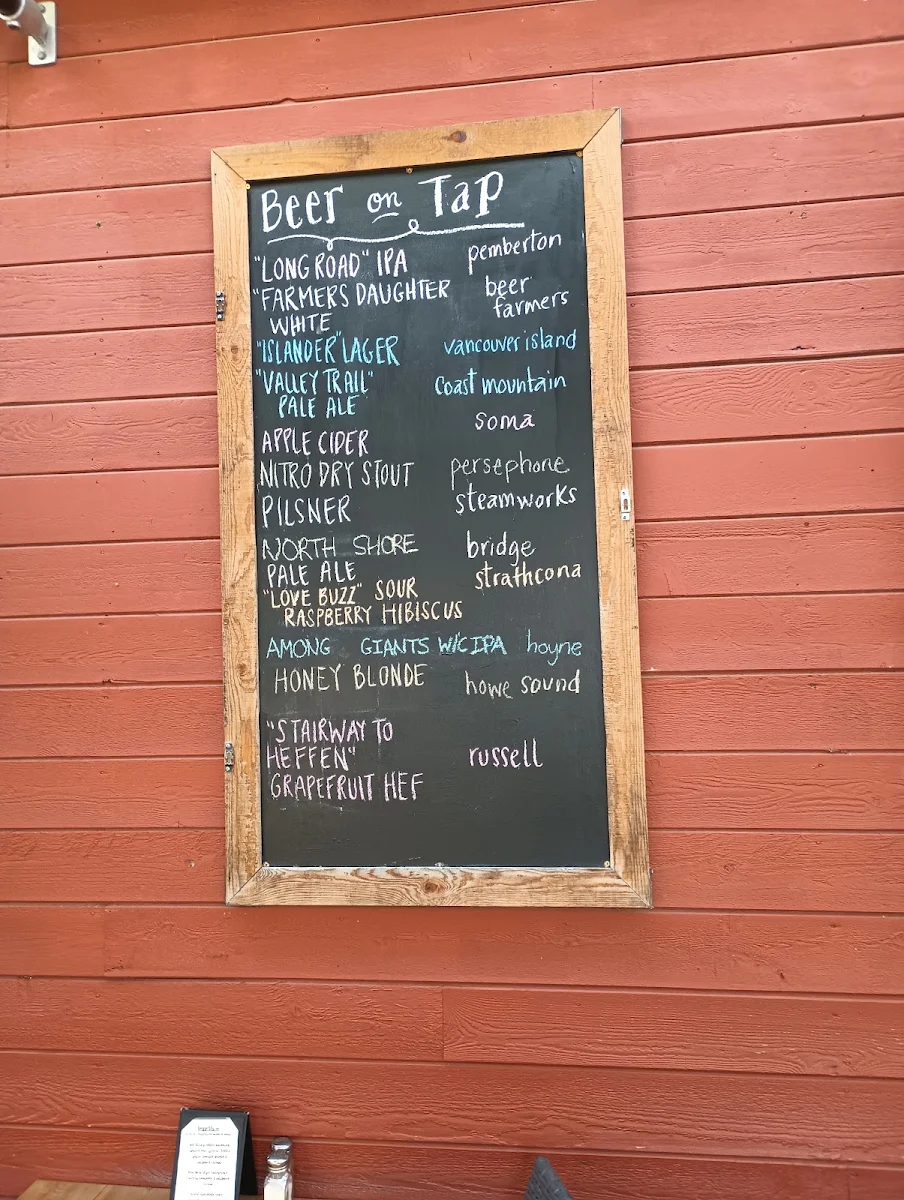 Beer on Tap
"LONG ROAD" IPA pemberton
"FARMERS DAUGHTER beer
WHITE farmers
"ISLANDER" LAGER vancouver island
"VALLEY TRAIL" coast mountain
PALE ALE
APPLE CIDER soma
NITRO DRY STOUT persephone
PILSNER steamworks
NORTH SHORE bridge
PALE ALE strathcona
"LOVE BUZZ" SOUR
RASPBERRY HIBISCUS
AMONG GIANTS WC IPA hoyne
HONEY BLONDE howe sound
"STAIRWAY TO
HEFFEN" russell
GRAPEFRUIT HEF